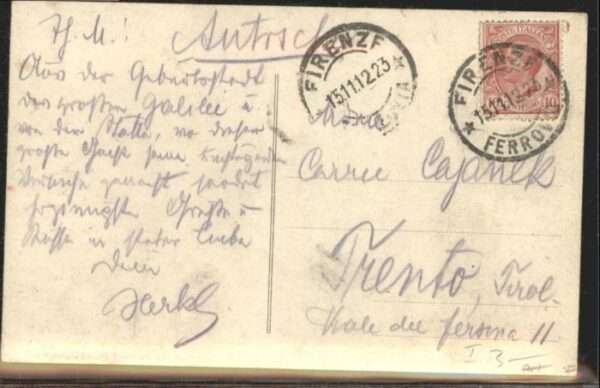 Th. M.!
Aus der Geburtsstadt
des großen Galilei u.
von der Stätte, wo dieser
große Geist seine
Versuche gemacht, sendet
Grüße u.
Küsse in steter Liebe
Dein
Austria
FIRENZE
15.11.12.23
FIRENZE
15.11.12.23
FERROVIA
POSTE ITALIANE
10
Carrie Cajanek
Trento, Tirol.
Viale del fersina 11
I 3-